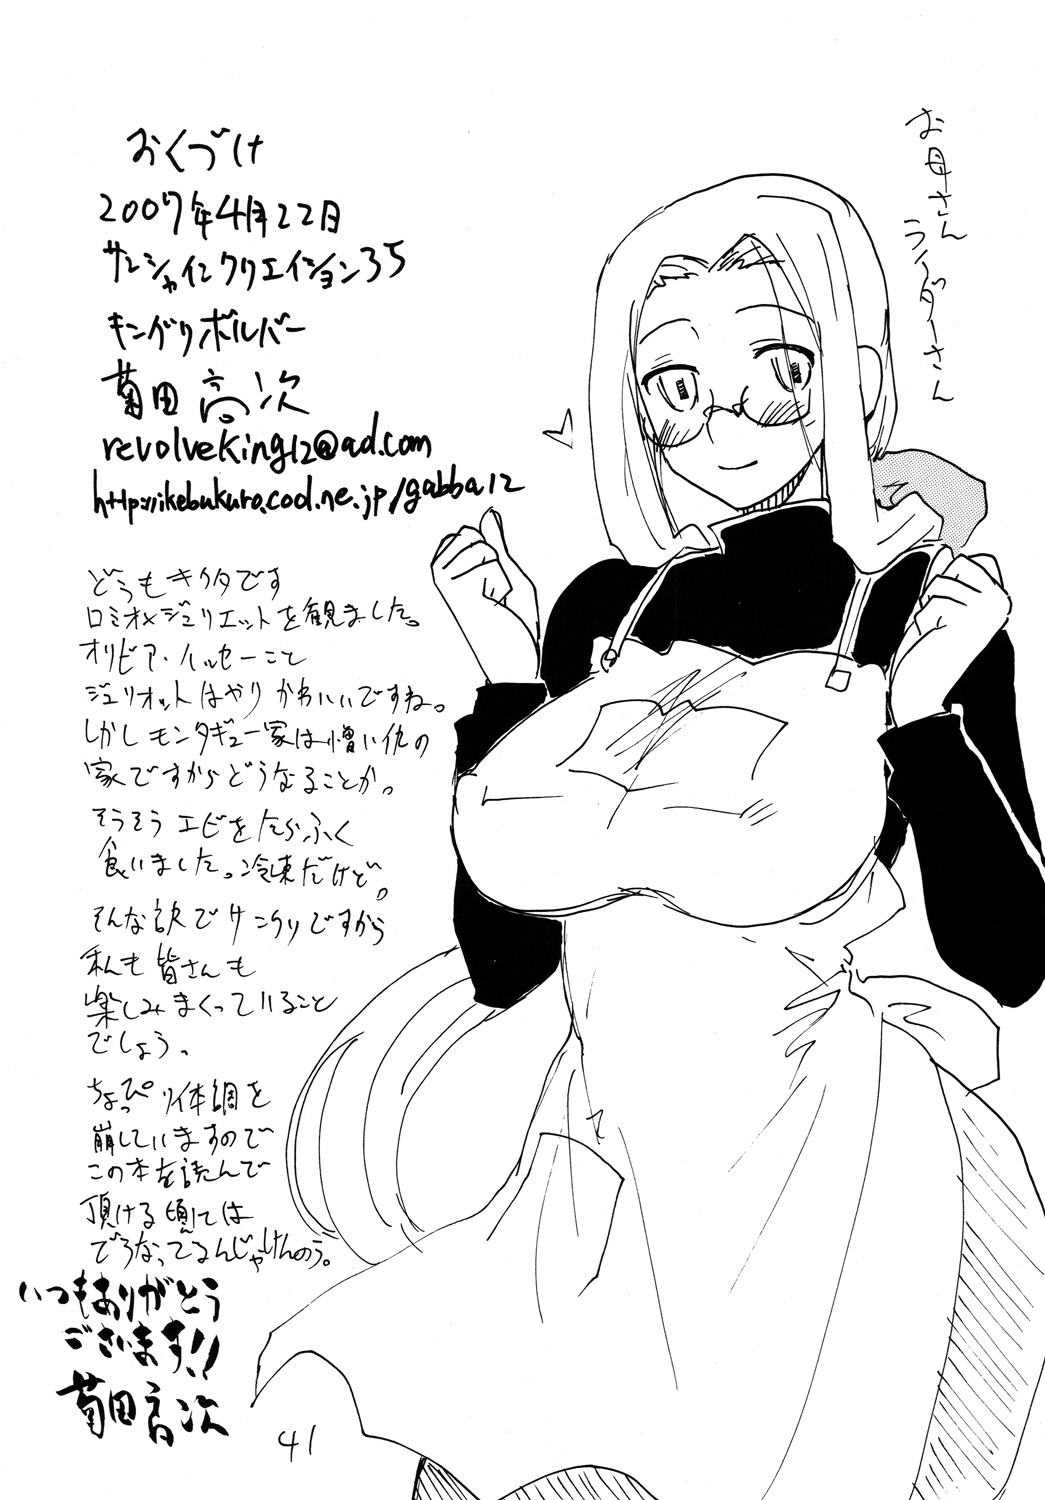 おくづけ
2007年4月22日
サンシャインクリエイション35
キングリボルバー
菊田高次
revolveking12@ad.com
http://ikebukuro.cool.ne.jp/gabba12
どうもキクタです
ロミオ×ジュリエットを観ました。
オリビア・ハッセーこと
ジュリオットはやりかわいいですね。
しかしモンタギュー家は憎い仇の
家ですからどうなることか。
そうそうエビをたらふく
食いました。冷凍だけど。
そんな訳でサンクリですから
私も皆さんも
楽しみまくっていること
でしょう。
ちょっぴり体調を
崩していますので
この本を読んで
頂ける頃には
どうなってるんじゃけんのう。
いつもありがとう
ございます!!
菊田高次
お母さん
ライダーさん
41